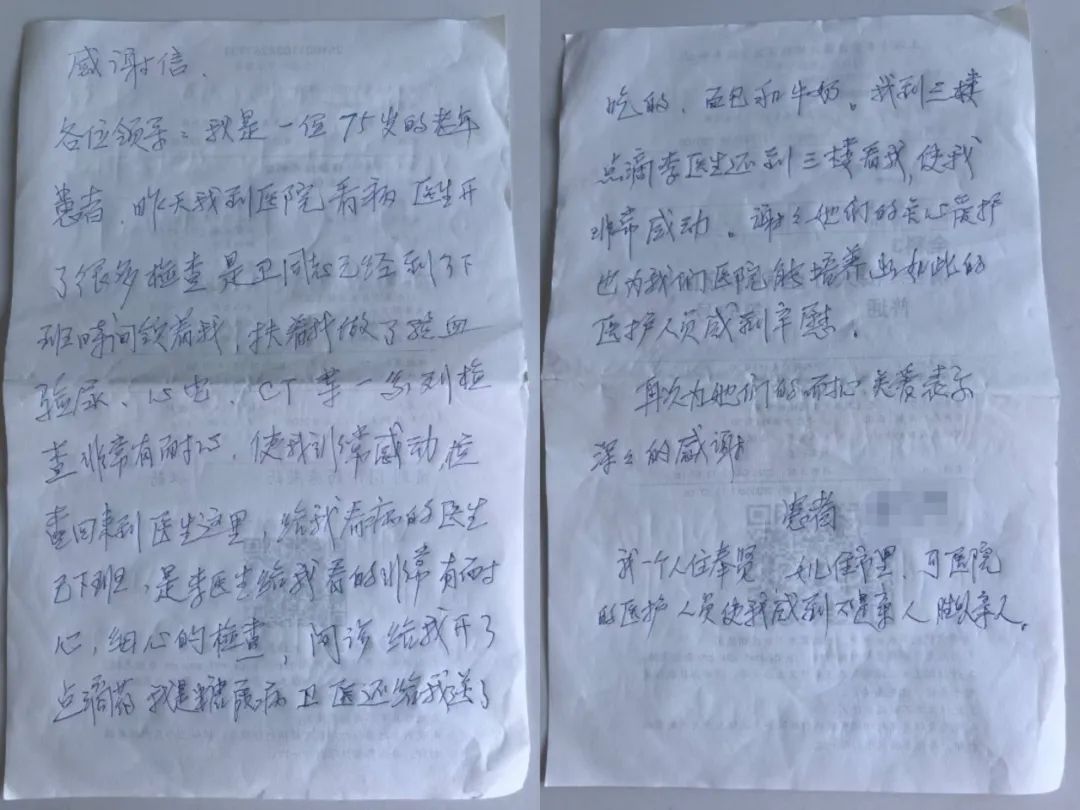 感谢信、
各位领导：我是一位75岁的老年
患者，昨天我到医院看病 医生开
了很多检查是卫同志已经到了下
班时间领着我，扶着我做了验血
验尿、心电、CT等一系列检
查非常有耐心，使我非常感动，检
查回来到医生这里，给我看病的医生
已下班，是李医生给我看的非常有耐
心，细心的检查，问诊给我开了
点滴药 我是糖尿病 卫医还给我送了
吃的、面包和牛奶。我到三楼
点滴李医生还到三楼看我，使我
非常感动。谢谢他们的关心爱护
也为我们医院能培养出如此的
医护人员感到辛慰。
再次为他们的耐心 关爱表示
深深的感谢
患者
我一个人住奉贤 女儿住市里、可医院
的医护人员使我感到不是亲人胜似亲人。